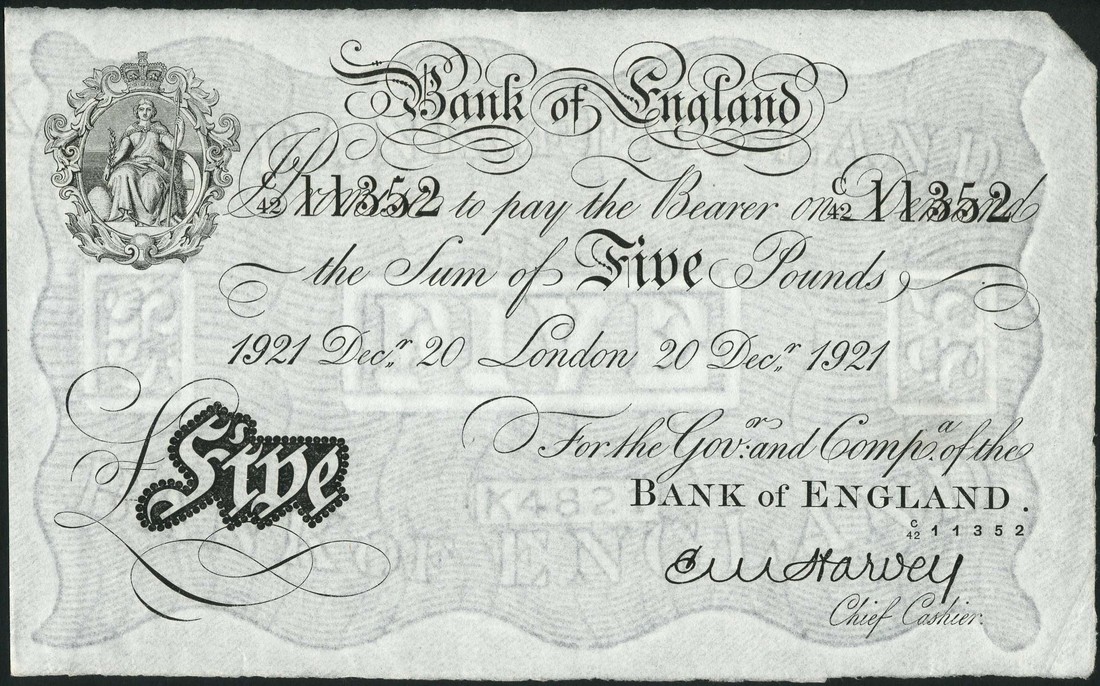 Bank of England
I Promise to pay the Bearer on Demand
C/42 11352 C/42 11352
the Sum of Five Pounds
1921 Decr 20 London 20 Decr 1921
For the Govr: and Compa. of the
BANK of ENGLAND.
C/42 11352
£Five
K482
Chief Cashier.